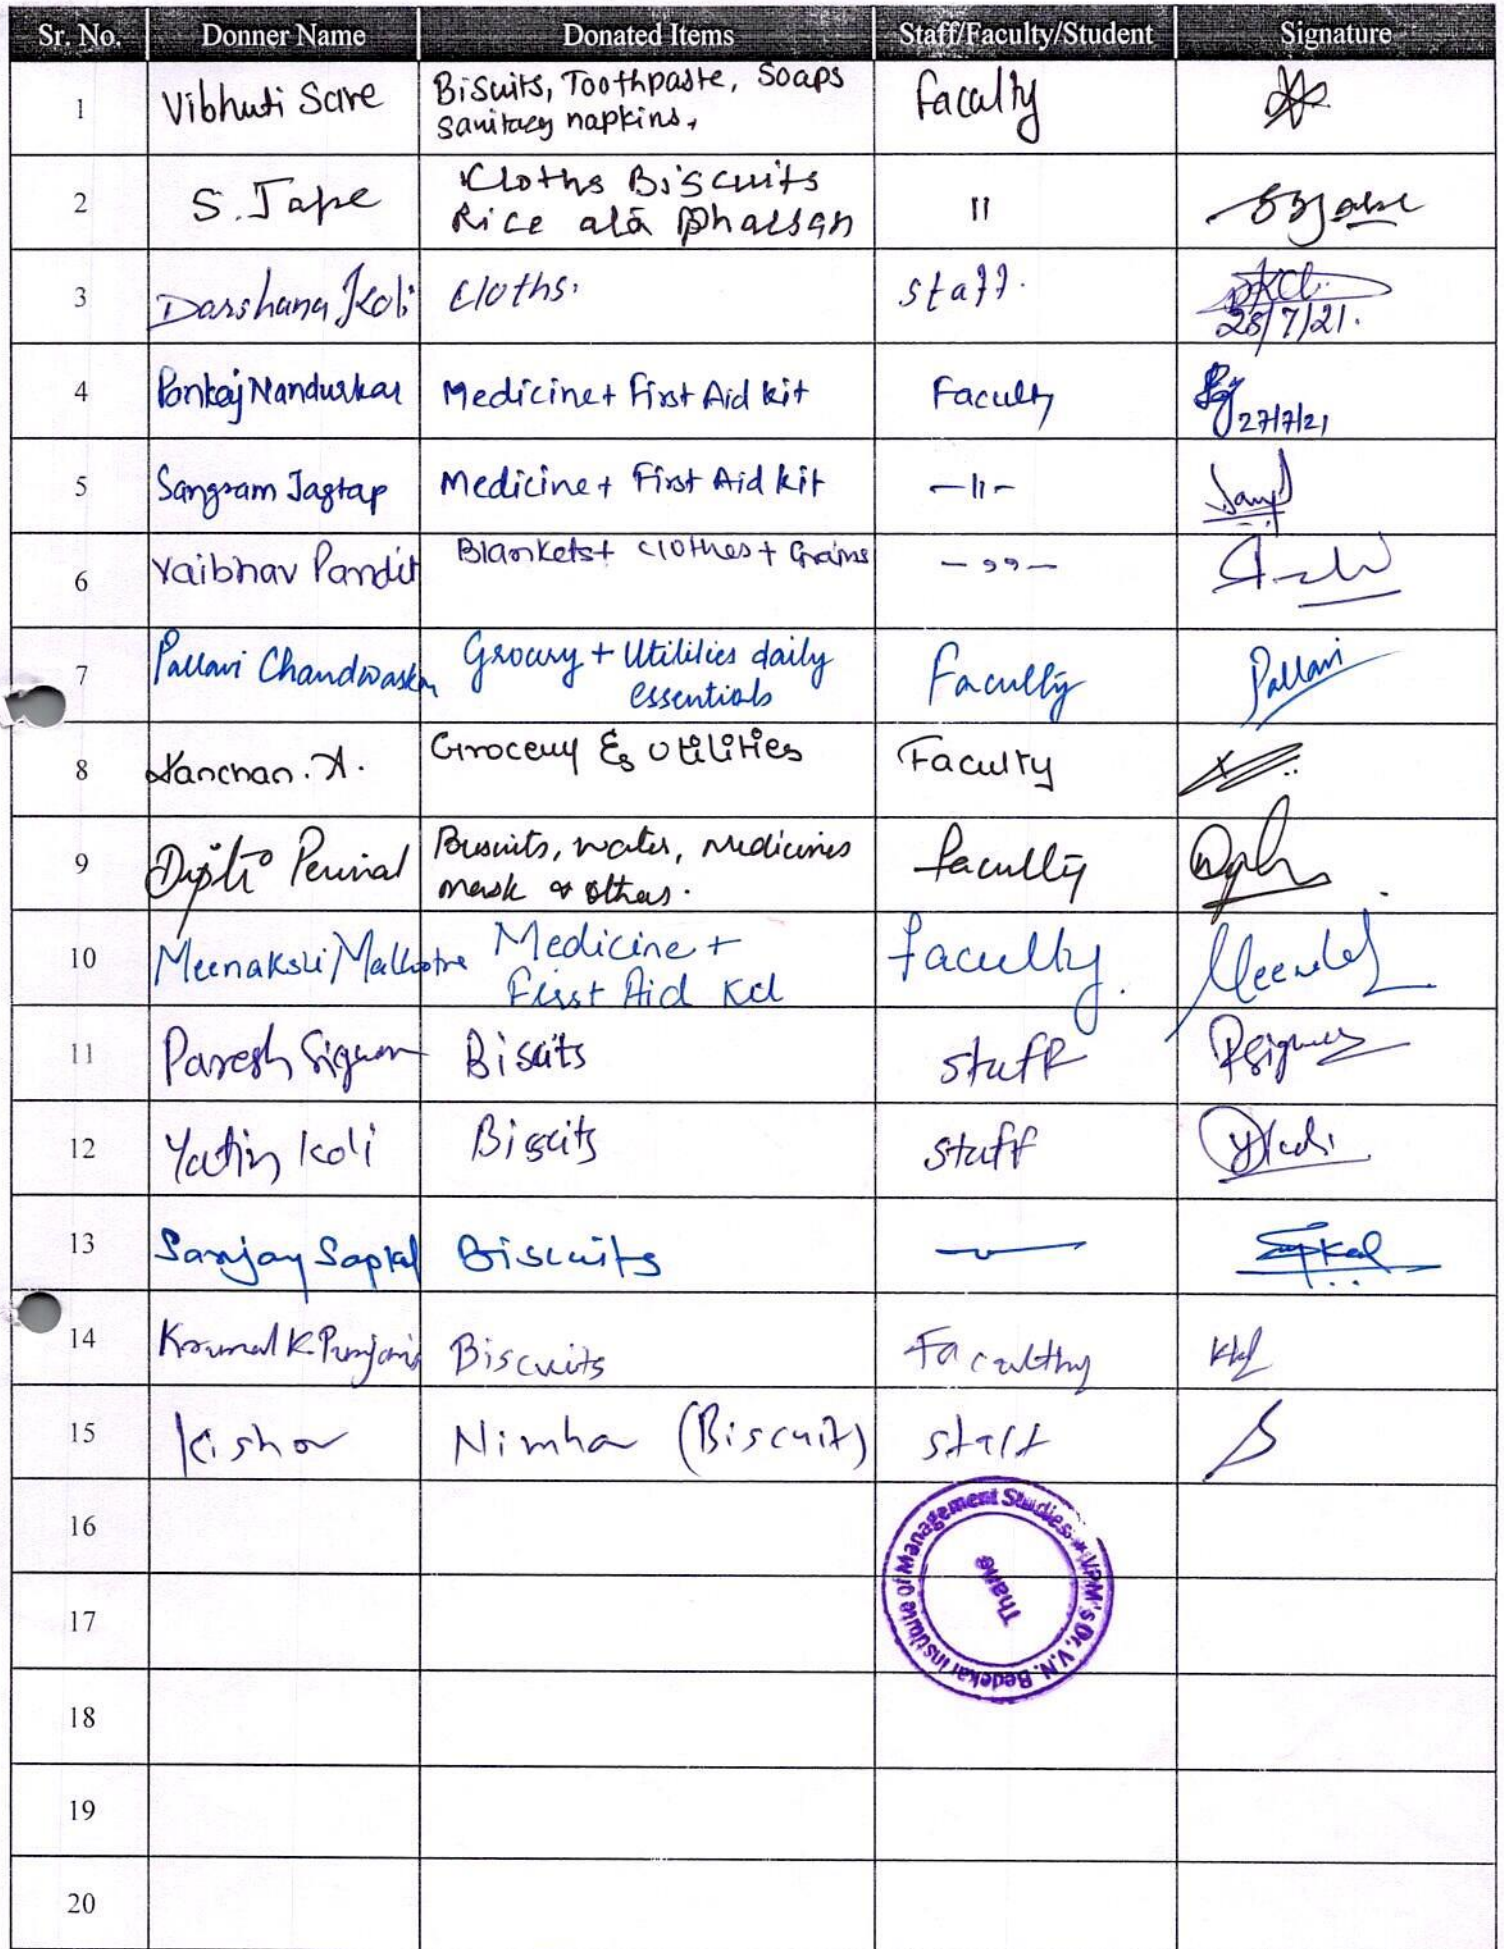 Sr. No. Donner Name Donated Items Staff/Faculty/Student Signature
1 Vibhuti Save Biscuits, Toothpaste, Soaps Faculty
sanitary napkins,
2 S. Jape Cloths Biscuits "
Rice
3 Darshana Koli cloths. staff.
28/7/21.
4 Pankaj Nandurkar Medicine + First Aid kit Faculty
27/7/21
5 Sangram Jagtap Medicine + First Aid kit -11-
6 Vaibhav Pandit Blankets + clothes + Grains - ,, -
7 Pallavi Chandwaskar Grocery + Utilities daily Faculty Pallavi
essentials
8 Kanchan. A. Grocery & Utilities Faculty
9 Dipti Periwal Biscuits, water, medicines faculty
mask & others.
10 Meenakshi Malhotra Medicine + faculty.
First Aid Kit
11 Paresh Biscits staff
12 Yatin Koli Biscits staff
13 Sanjay Sapkal Biscuits
14 K. Punjani Biscuits Facalthy
15 Kishor (Biscuit) staff
16
17
18
19
20
VPM's Dr. V.N. Bedekar Institute Of Management Studies *
Thane